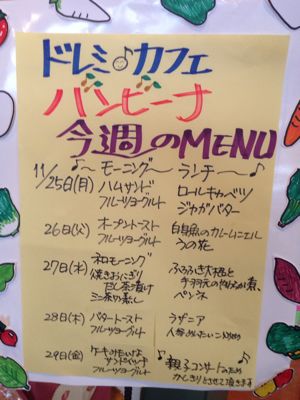 ドレミ♪カフェ
バンビーナ
今週のMENU
♪〜モーニング〜 ランチ〜♪
11/25日(月) ハムサンド ロールキャベツ
フルーツヨーグルト ジャガバター
26日(火) オープントースト 白身魚のクリームニエル
フルーツヨーグルト うの花
27日(水) 和モーニング
焼きおにぎり ふろふき大根と
だし茶漬け 手羽元のやわらか煮、
ミニ茶わん蒸し ペンネ
28日(木) バタートースト ラザニア
フルーツヨーグルト 人参
29日(金) ケーキみたいな ♪親子コンサートのため♪
サンドイッチ かしきりとさせて頂きます
フルーツヨーグルト